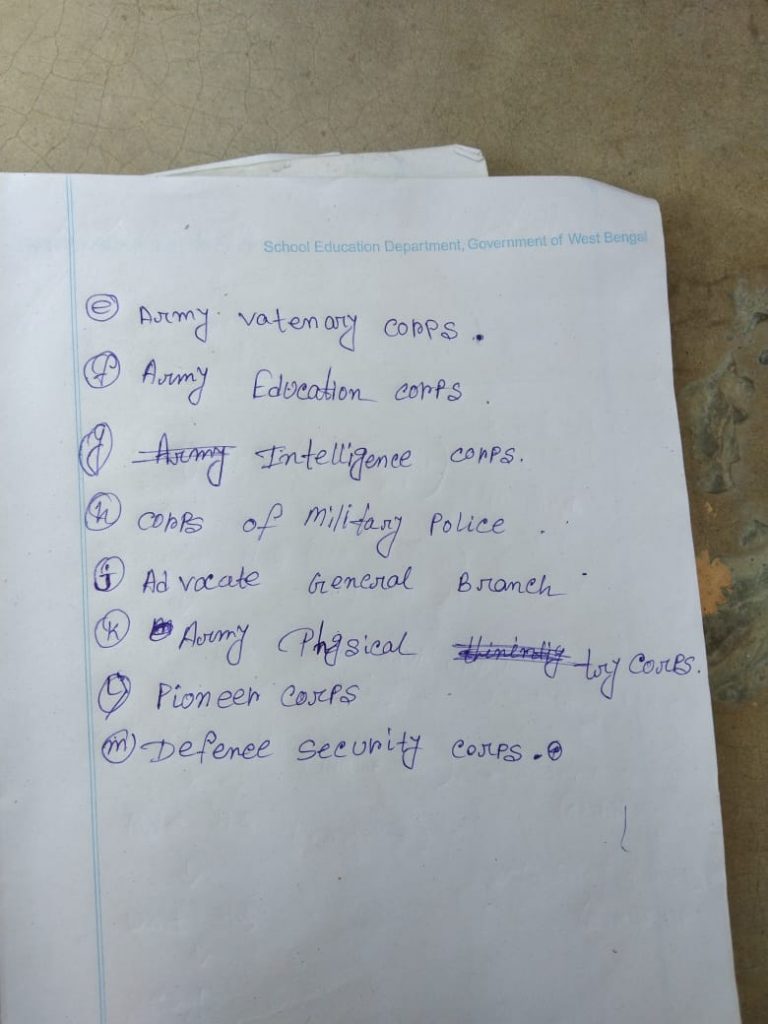 School Education Department, Government of West Bengal
e Army vatenary corps.
f Army Education corps.
g Army Intelligence corps.
h corps of military Police.
j Advocate General Branch
k Army Physical try corps.
l Pioneer corps
m Defence security corps.